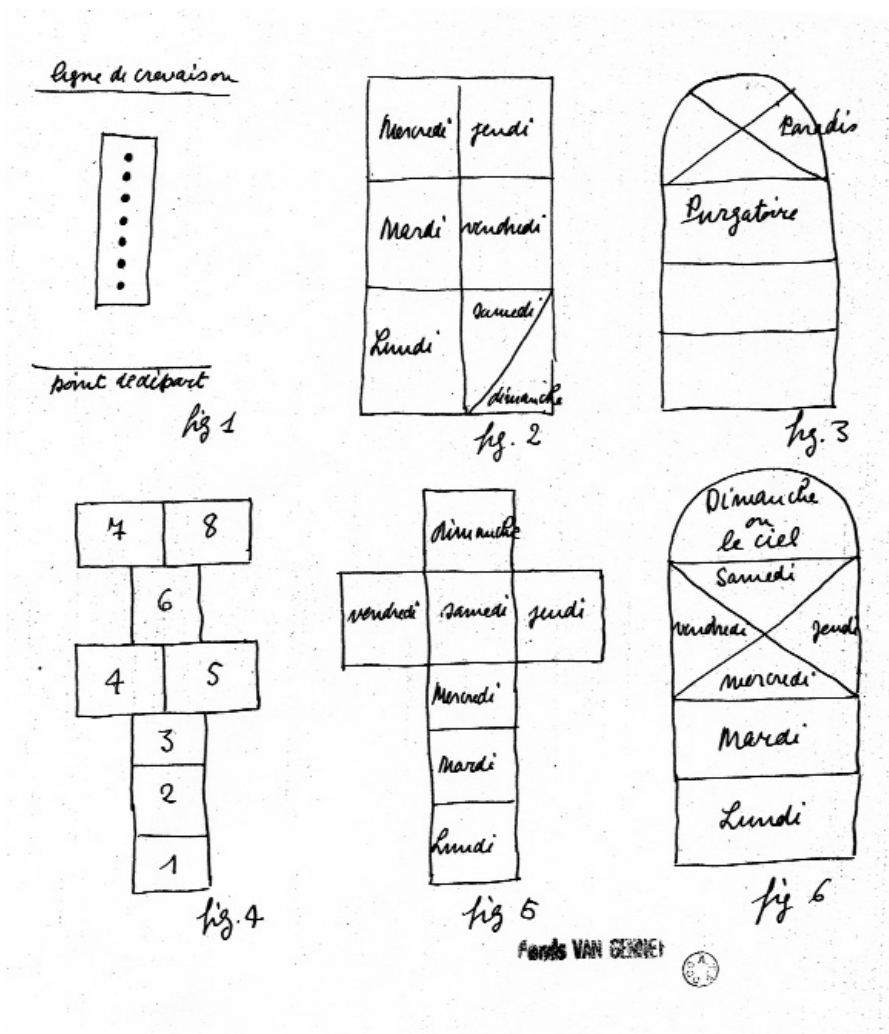 ligne de crevaison
point de départ
fig 1
Mercredi
jeudi
Mardi
vendredi
Lundi
samedi
dimanche
fig. 2
Paradis
Purgatoire
fig. 3
7
8
6
4
5
3
2
1
fig. 4
dimanche
vendredi
samedi
jeudi
Mercredi
Mardi
Lundi
fig 5
Dimanche
ou
le ciel
Samedi
vendredi
jeudi
mercredi
Mardi
Lundi
fig 6
Fonds VAN GENNEP